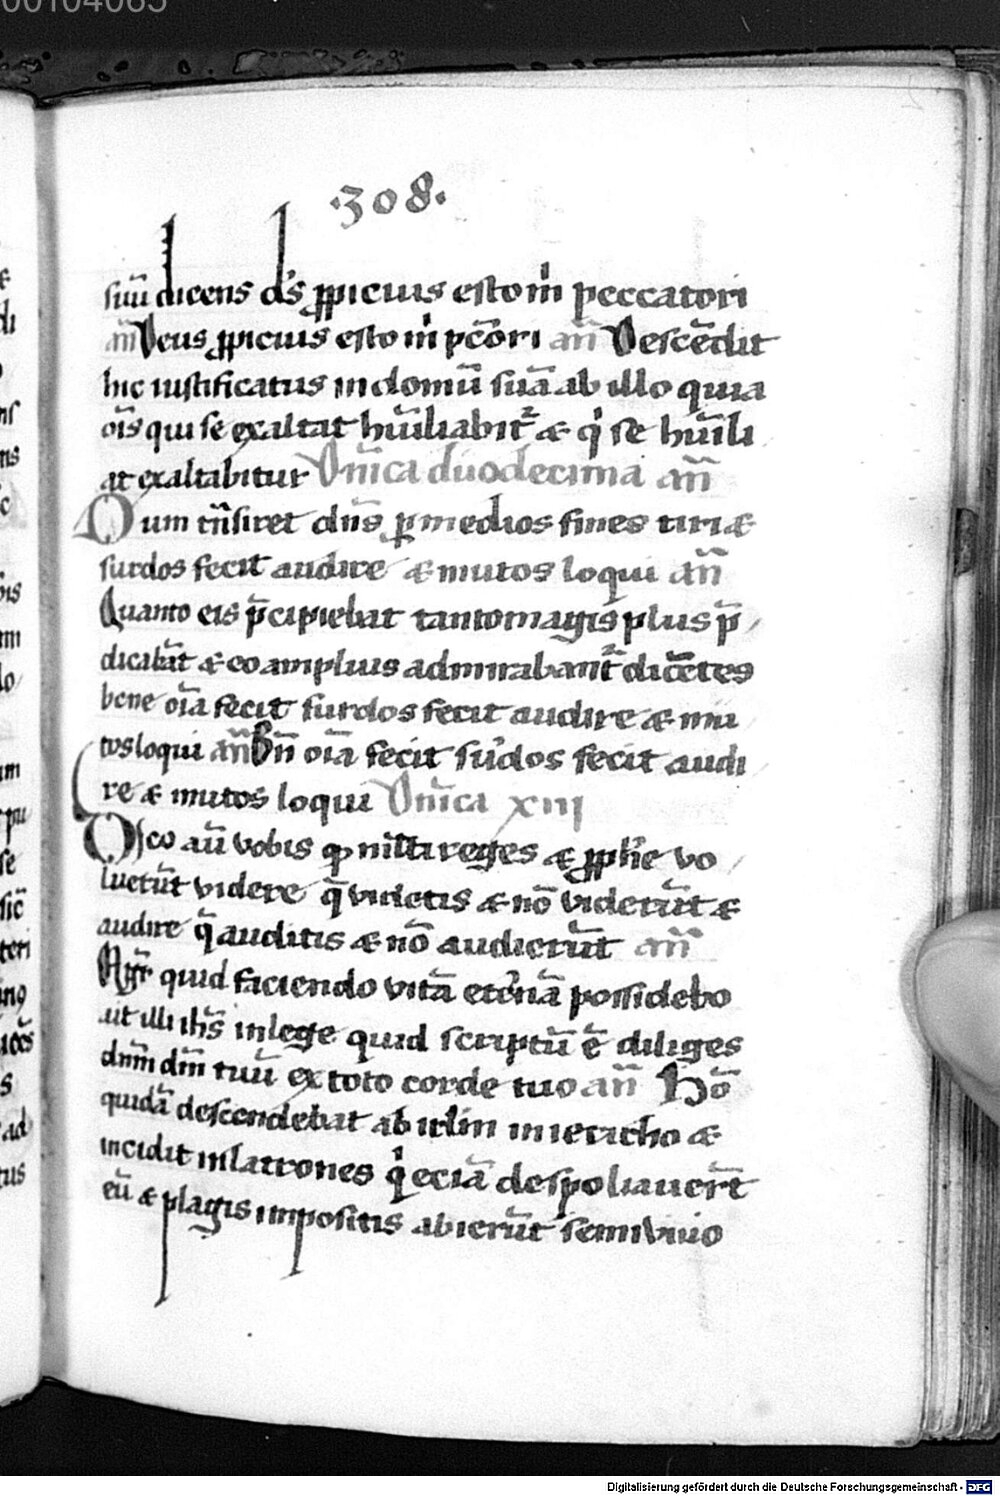 00104065
·308·
suū dicens ds̄ ꝓpicius esto mͥ peccatori
an̄ Deus ꝓpicius esto mͥ pc̄ori an̄ Descēdit
hic iustificatus in domū suā ab illo quia
oīs qui se exaltat hūiliabit᷑ & qͥ se hūili
at exaltabitur Dn̄ica duodecima an̄
Dum tn̄siret dn̄s ꝑ medios fines tiri &
surdos fecit audire & mutos loqui an̄
Quanto eis p̄cipiebat tantomagis plus p̄
dicabāt & eo amplius admirabant᷑ dicētes
bene oīa fecit surdos fecit audire & mu
tos loqui an̄ Bn̄ oīa fecit surdos fecit audi
re & mutos loqui Dn̄ica xiij
Dico aū vobis ꝙ multi reges & ꝓphe vo
luerūt videre q̄ videtis & nō viderūt &
audire q̄ auditis & nō audierūt an̄
Mgr̄ quid faciendo vitā etnā possidebo
ait illi ihs̄ in lege quid scriptū ē diliges
dnm̄ dm̄ tuū ex toto corde tuo an̄ Hō
quidā descendebat ab irlm̄ in iericho &
incidit in latrones qͥ eciā despoliauerūt
eū & plagis impositis abierūt semiviuo
Digitalisierung gefördert durch die Deutsche Forschungsgemeinschaft - DFG